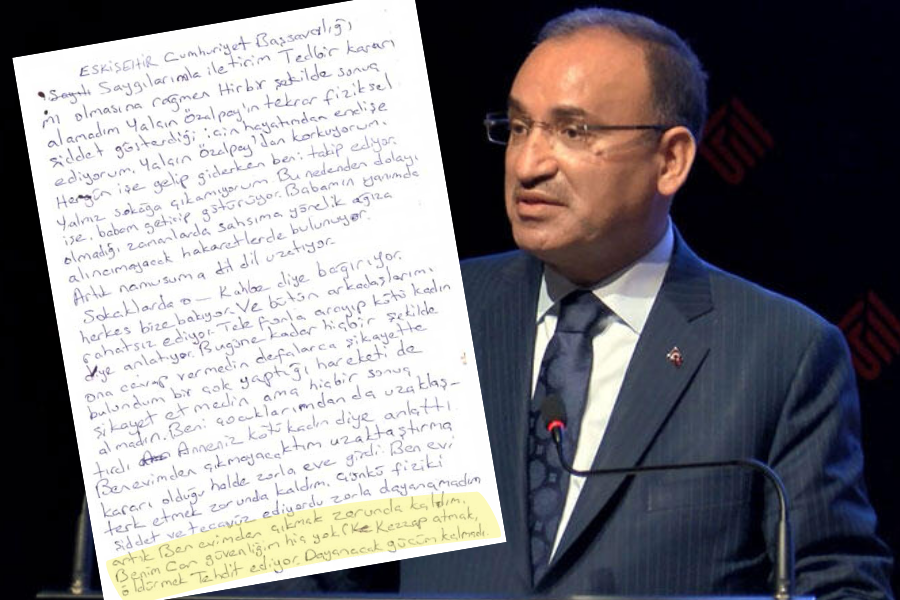 ESKİŞEHİR Cumhuriyet Başsavcılığı
Saygılarımla iletirim Tedbir kararı
mı olmasına rağmen Hirbir şekilde sonuç
alamadım Yalçın Özalpay'ın tekrar fiziksel
şiddet gösterdiği için hayatımdan endişe
ediyorum. Yalçın Özalpay'dan korkuyorum.
Hergün işe gelip giderken beni takip ediyor.
Yalnız sokağa çıkamıyorum Bu nedenden dolayı
işe, babam getirip götürüyor. Babamın yanımda
olmadığı zamanlarda şahsıma yönelik ağıza
alıncımayacak hakaretlerde bulunuyor.
Artık namusuma dil dil uzatıyor.
Sokaklarda o— Kahbe diye bağırıyor.
herkes bize bakıyor. Ve bütün arkadaşlarımı
rahatsız ediyor. Tek fonla arayıp kötü kadın
diye anlatıyor. Bugüne kadar hiçbir şekilde
ona cevap vermedin defalarca şikayette
bulundum bir çok yaptığı hareketi de
şikayet etmedin ama hiçbir sonuç
almadın. Beni çocuklarımdan da uzaklaş-
tırdı Anneniz kötü kadın diye anlattı.
Ben evimden çıkmayacaktım uzaktaştırma
kararı olduğu halde zorla eve girdi. Ben evi
terk etmek zorunda kaldım. Çünkü fiziki
şiddet ve tecavüz ediyordu zorla dayanamadım
artık Ben evimden çıkmak zorunda kaldım.
Benim Can güvenliğim hiç yok Kezzap atmak,
öldürmek Tehdit ediyor. Dayanacak gücüm kalmadı.